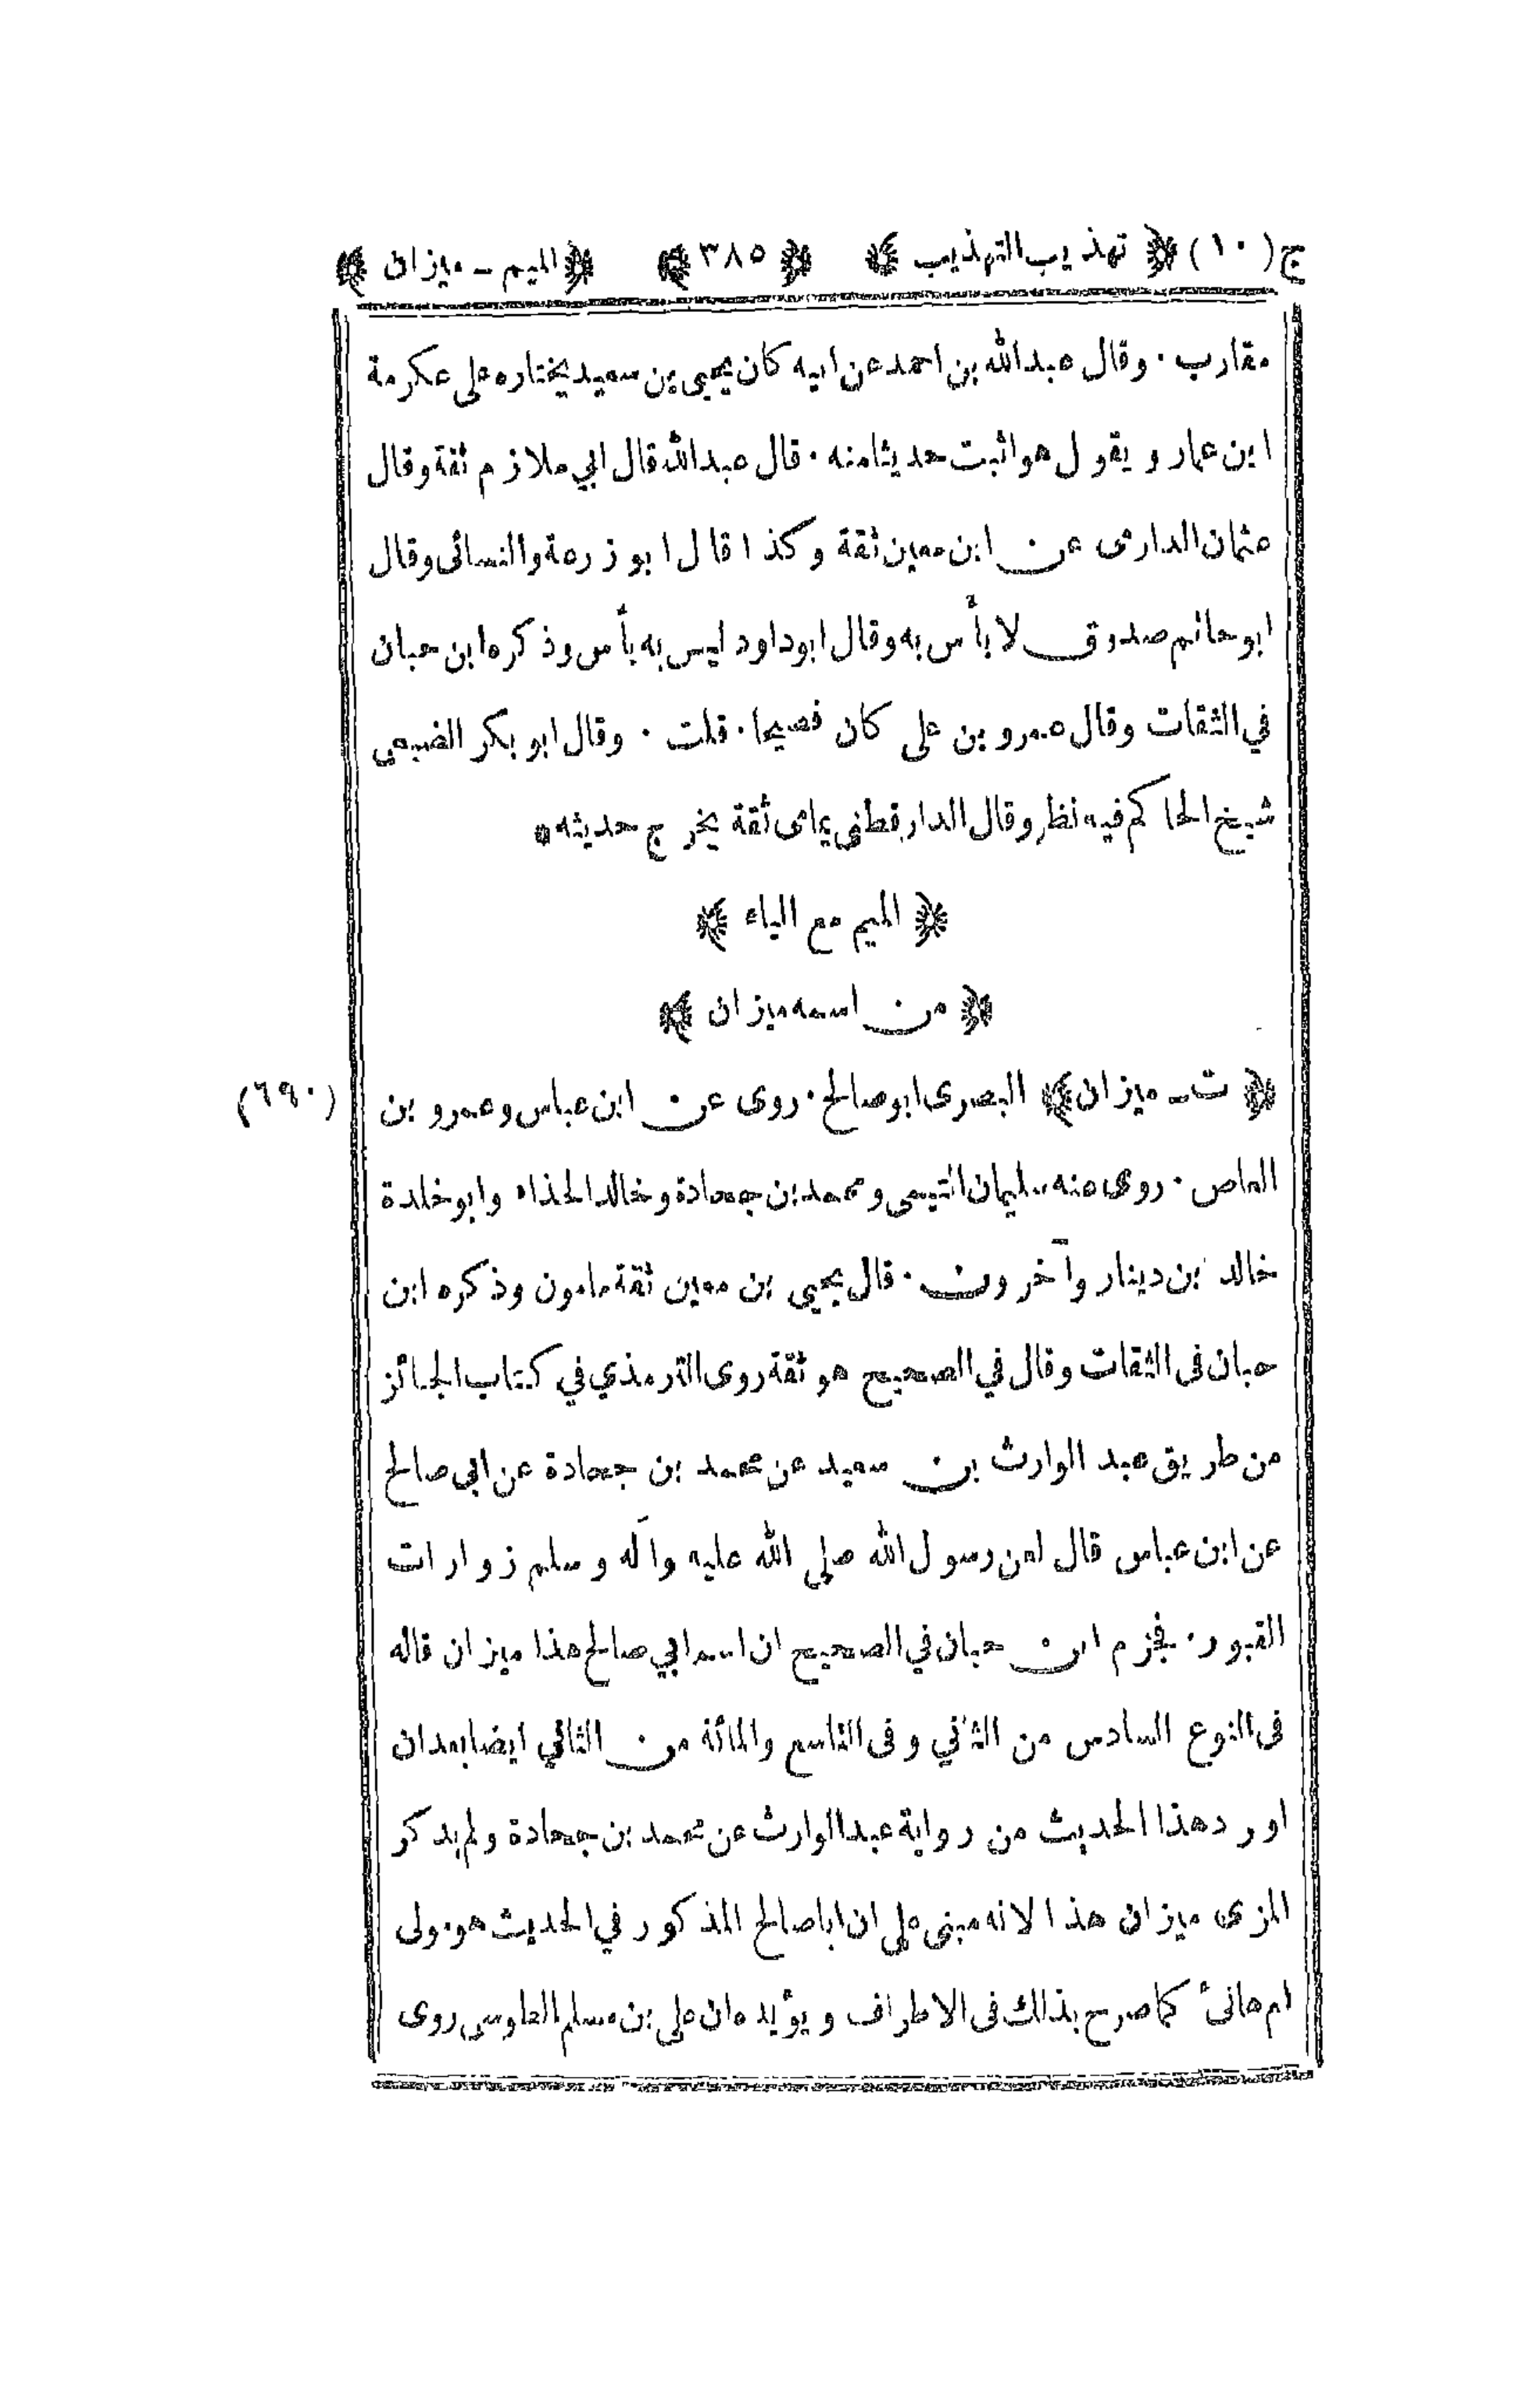 ج(١٠) ﴿ تهذيب التهذيب ﴾ ﴿ ٣٨٥ ﴾ ﴿ الميم – ميزان ﴾
مقارب · وقال عبدالله بن احمد عن ابيه كان يحيى بن سعيد يختاره على عكرمة
ابن عمار ويقول هو اثبت حديثا منه · قال عبدالله قال ابي ملازم ثقة وقال
عثمان الدارمى عن ابن معين ثقة وكذا قال ابو زرعة والنسائى وقال
ابو حاتم صدوق لا بأس به وقال ابوداود ليس به بأس وذكره ابن حبان
في الثقات وقال عمرو بن على كان فصيحا · قلت · وقال ابو بكر الضبعى
شيخ الحاكم فيه نظر وقال الدارقطنى يمامى ثقة يخرج حديثه ٥
﴿ الميم مع الياء ﴾
﴿ من اسمه ميزان ﴾
﴿ ت – ميزان ﴾ البصرى ابو صالح · روى عن ابن عباس وعمرو بن (٦٩٠)
العاص · روى عنه سليمان التيمى ومحمد بن جحادة وخالد الحذاء وابو خلدة
خالد بن دينار وآخرون · قال يحيى بن معين ثقة مامون وذكره ابن
حبان فى الثقات وقال في الصحيح هو ثقة روى الترمذي في كتاب الجنائز
من طريق عبد الوارث بن سعيد عن محمد بن جحادة عن ابى صالح
عن ابن عباس قال لعن رسول الله صلى الله عليه وآله وسلم زوارات
القبور · فجزم ابن حبان في الصحيح ان اسم ابي صالح هذا ميزان قاله
فى النوع السادس من الثاني وفى التاسع والمائة من الثاني ايضا بعد ان
اورد هذا الحديث من رواية عبد الوارث عن محمد بن جحادة ولم يذكر
المزى ميزان هذا لانه مبنى على ان ابا صالح المذكور في الحديث هو مولى
ام هانىٔ كما صرح بذلك فى الاطراف ويؤيده ان على بن مسلم الطوسى روى